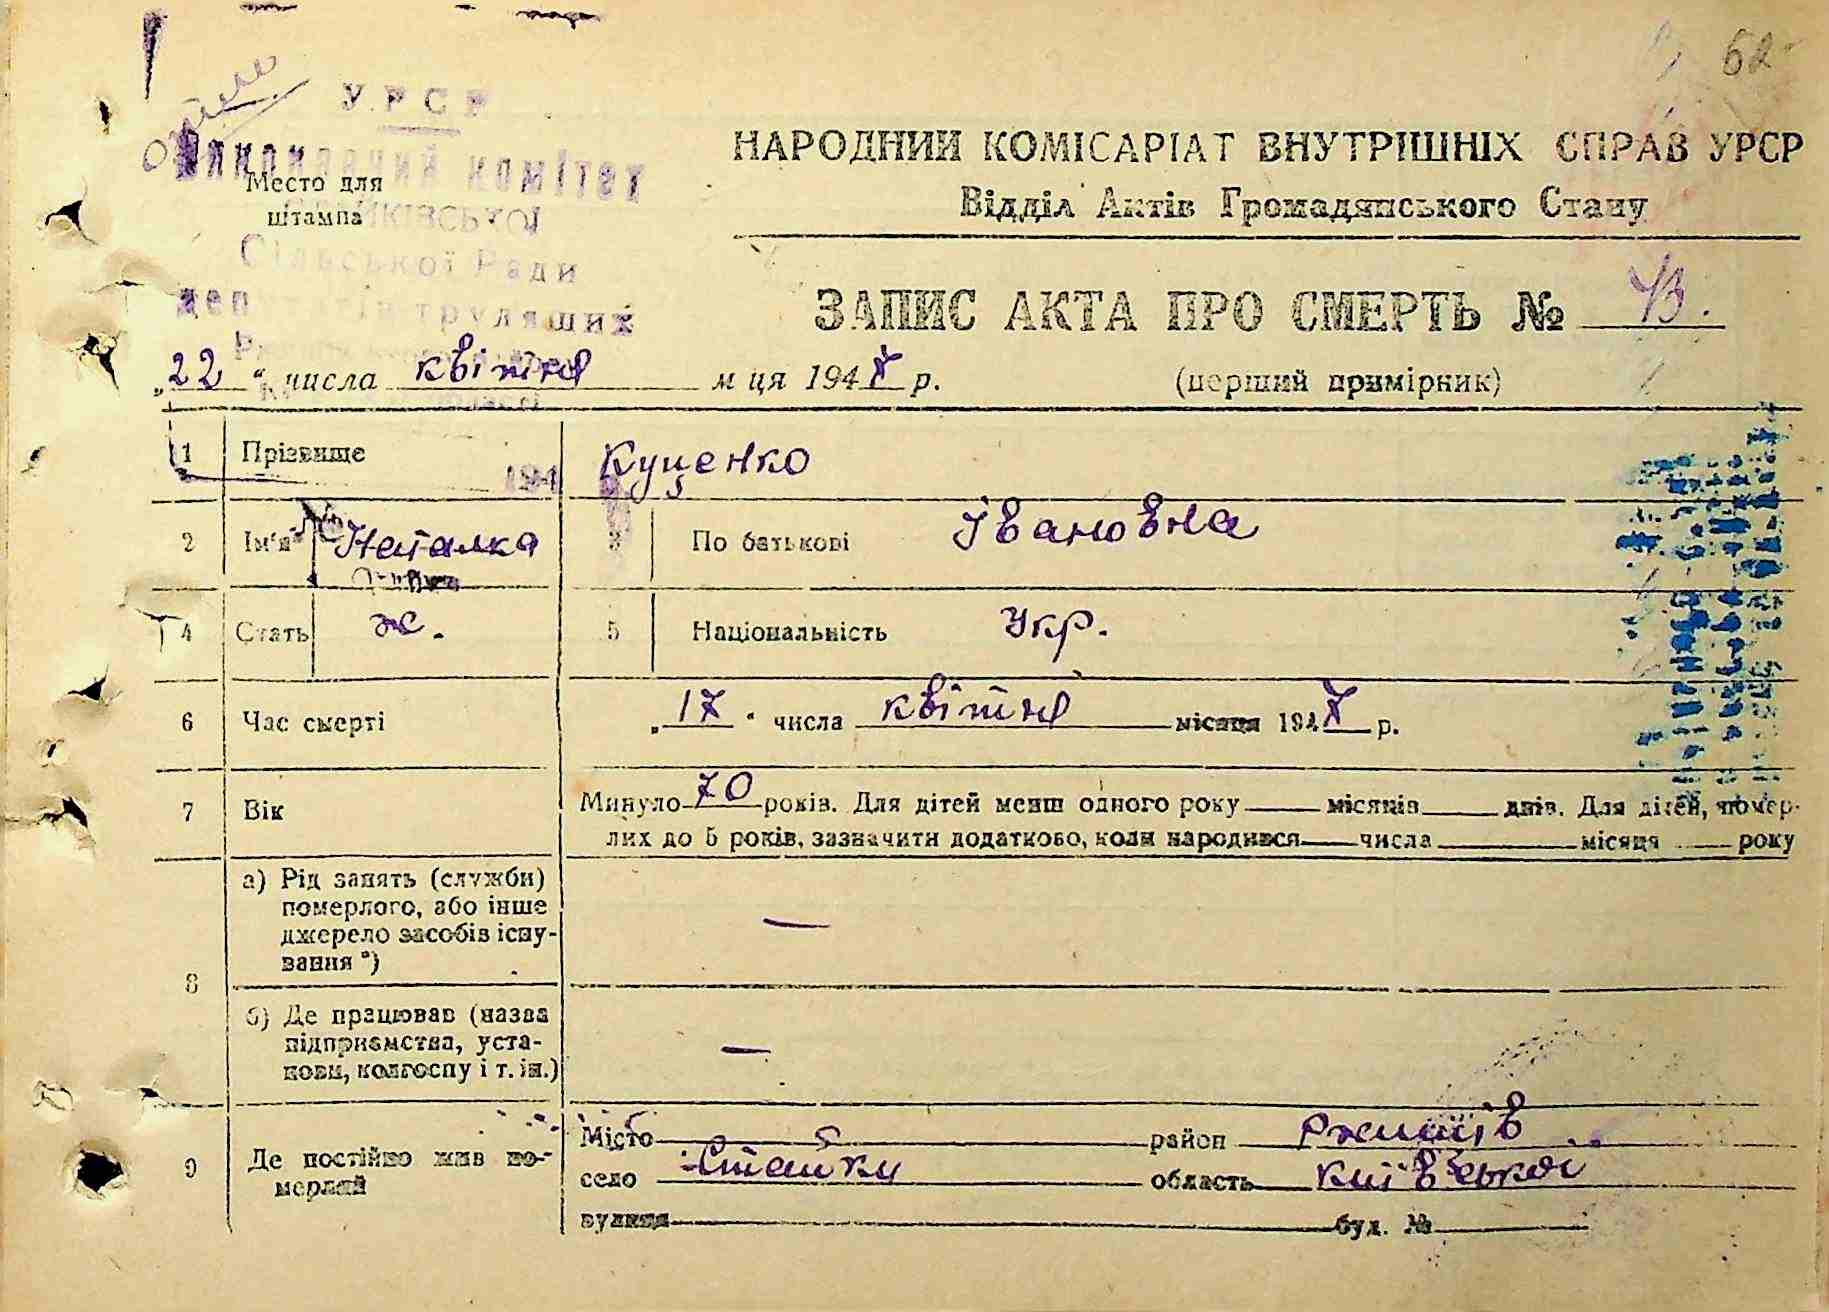 62
УРСР
Виконавчий комітет
Место для
штампа
Стайківської
Сільської Ради
депутатів трудящих
НАРОДНИЙ КОМІСАРІАТ ВНУТРІШНІХ СПРАВ УРСР
Відділ Актів Громадянського Стану
ЗАПИС АКТА ПРО СМЕРТЬ № 43.
„22“ числа квітня м ця 1947 р. (перший примірник)
1 Прізвище Куценко
194
2 Ім'я Наталка 3 По батькові Івановна
4 Стать ж. 5 Національність Укр.
6 Час смерті „17“ числа квітня місяця 1947 р.
7 Вік Минуло 70 років. Для дітей менш одного року місяців днів. Для дітей, помер-
лих до 5 років, зазначити додатково, коли народився числа місяця року
8 а) Рід занять (служби)
померлого, або інше
джерело засобів існу-
вання *) —
б) Де працював (назва
підприємства, уста-
нови, колгоспу і т. ін.) —
9 Де постійно жив по-
мерлий
Місто район Ржищів
село Стайки область Київська
вулиця буд. №